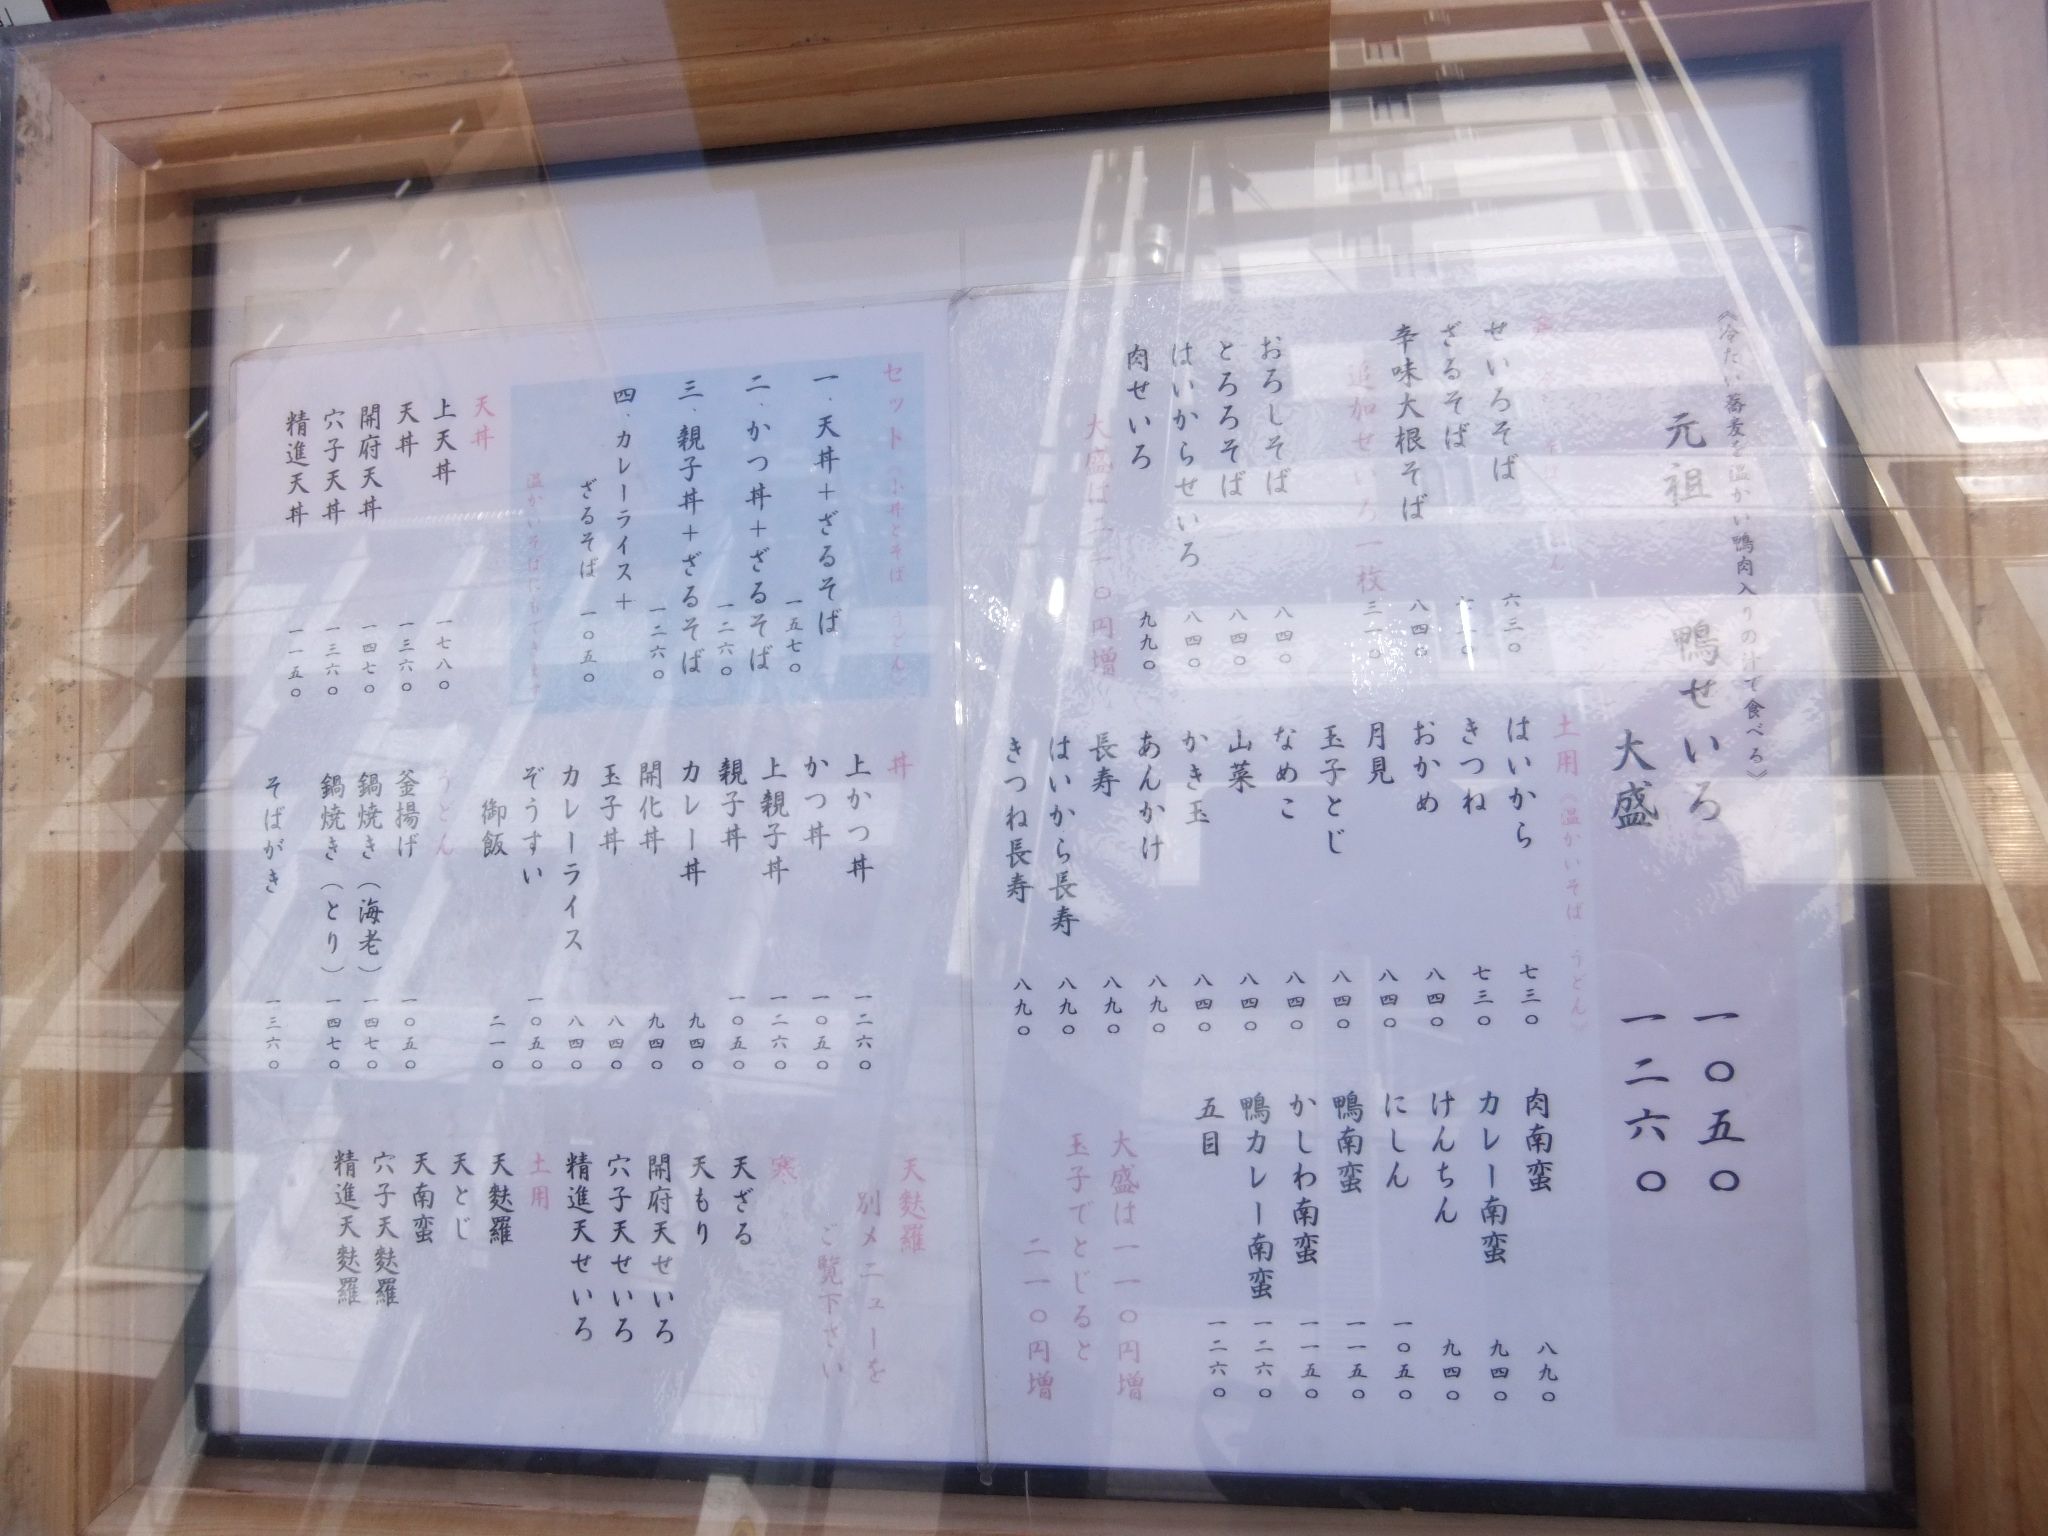 《冷たい蕎麦を温かい鴨肉入りの汁で食べる》
元祖 鴨せいろ 一〇五〇
大盛 一二六〇
せいろそば 六三〇
ざるそば
辛味大根そば 八四〇
追加せいろ一枚 三一〇
おろしそば 八四〇
とろろそば 八四〇
はいからせいろ 八四〇
肉せいろ 九九〇
大盛は二一〇円増
土用《温かいそば うどん》
はいから 七三〇
きつね 七三〇
おかめ 八四〇
月見 八四〇
玉子とじ 八四〇
なめこ 八四〇
山菜 八四〇
かき玉 八四〇
あんかけ 八九〇
長寿 八九〇
はいから長寿 八九〇
きつね長寿 八九〇
肉南蛮 八九〇
カレー南蛮 九四〇
けんちん 九四〇
にしん 一〇五〇
鴨南蛮 一一五〇
かしわ南蛮 一一五〇
鴨カレー南蛮 一二六〇
五目 一二六〇
大盛は一一〇円増
玉子でとじると
二一〇円増
セット《小丼とそば・うどん》
一.天丼+ざるそば 一五七〇
二.かつ丼+ざるそば 一二六〇
三.親子丼+ざるそば 一二六〇
四.カレーライス+
ざるそば 一〇五〇
温かいそばにもできます
天丼
上天丼 一七八〇
天丼 一三六〇
開府天丼 一四七〇
穴子天丼 一三六〇
精進天丼 一一五〇
丼
上かつ丼 一二六〇
かつ丼 一〇五〇
上親子丼 一二六〇
親子丼 一〇五〇
カレー丼 九四〇
開化丼 九四〇
玉子丼 八四〇
カレーライス 八四〇
ぞうすい 一〇五〇
御飯 二一〇
うどん
釜揚げ 一〇五〇
鍋焼き(海老) 一四七〇
鍋焼き(とり) 一四七〇
そばがき 一三六〇
天麩羅
別メニューを
ご覧下さい
寒
天ざる
天もり
開府天せいろ
穴子天せいろ
精進天せいろ
土用
天麩羅
天とじ
天南蛮
穴子天麩羅
精進天麩羅